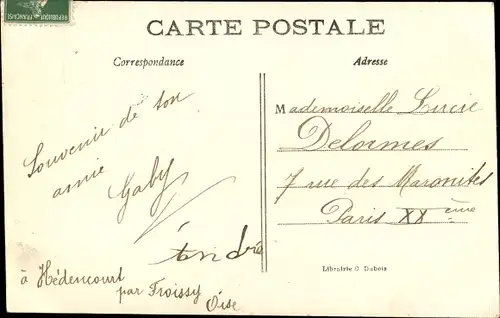 REPUBLIQUE FRANÇAISE
CARTE POSTALE
Correspondance
Adresse
Souvenir de ton
amie
Gaby
André
à Hédencourt
par Froissy
Oise
Mademoiselle Lucie
Delormes
7 rue des Maronites
Paris XXème
Librairie O. Dubois